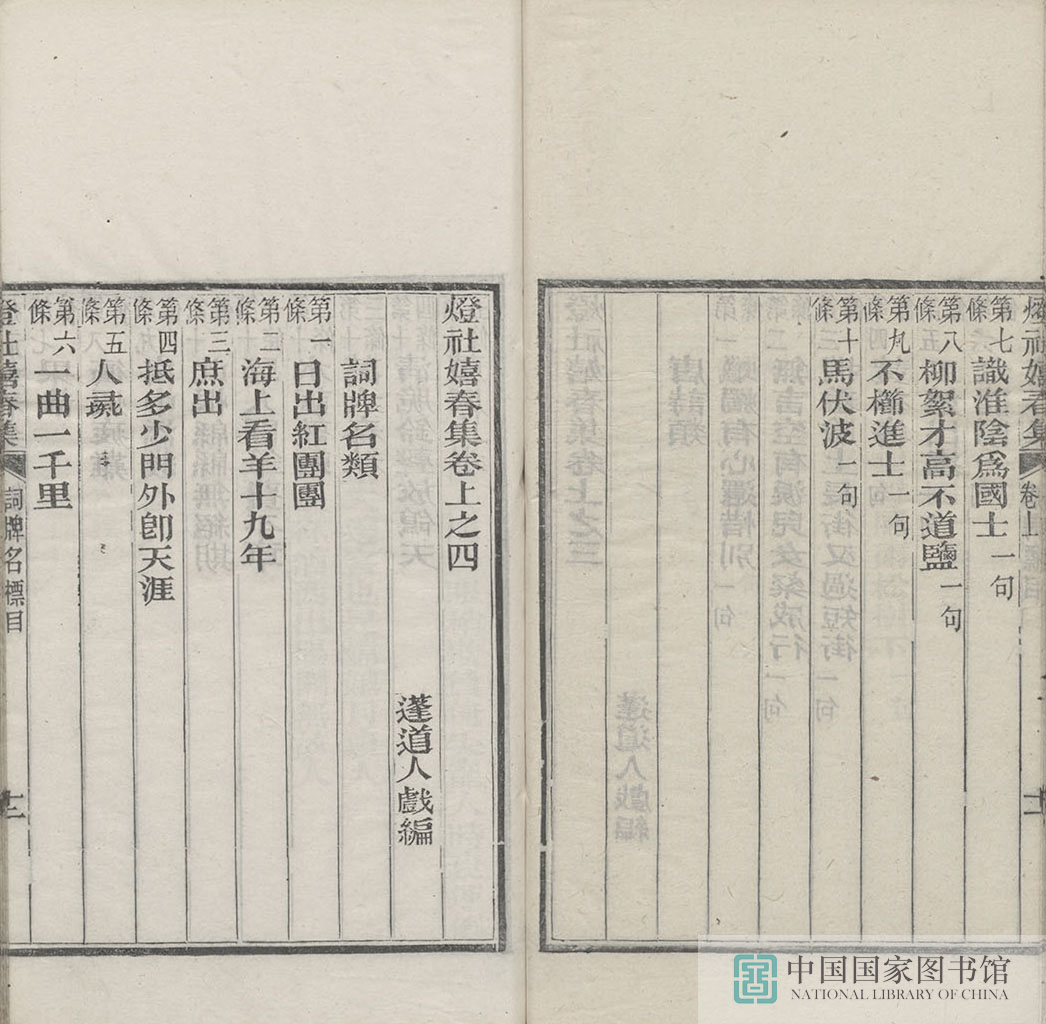 燈社嬉春集 卷上
第七條 識淮陰爲國士 一句
第八條 柳絮才高不道鹽 一句
第九條 不櫛進士 一句
第十條 馬伏波 一句
燈社嬉春集卷上之四
蘧道人戲編
詞牌名類
第一條 日出紅團團
第二條 海上看羊十九年
第三條 庶出
第四條 抵多少門外卽天涯
第五條 人彘
第六條 一曲一千里
燈社嬉春集 詞牌名標目
中国国家图书馆
NATIONAL LIBRARY OF CHINA